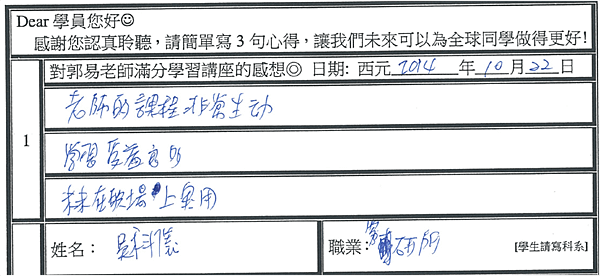 Dear 學員您好☺
感謝您認真聆聽，請簡單寫 3 句心得，讓我們未來可以為全球同學做得更好!
對郭易老師滿分學習講座的感想◎ 日期: 西元 2014 年 10 月 22 日
1
老師的課程非常生動
學習受益良多
未來在職場上實用
姓名：吳
職業：研所 [學生請寫科系]